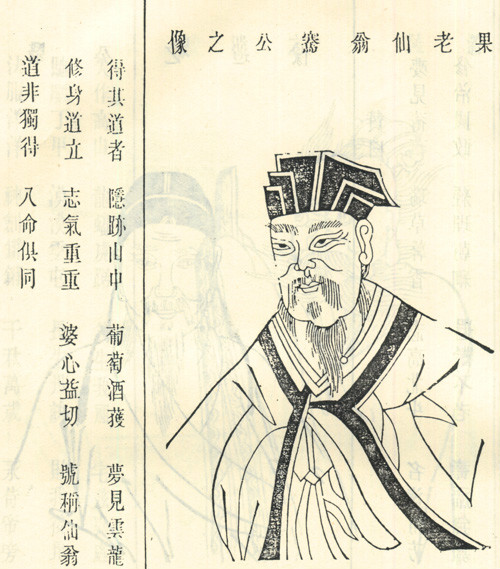 果老仙翁公之像
得其道者 隱跡山中 葡萄酒 夢見雲龍
修身道立 志氣重重 婆心益切 號稱仙翁
道非獨得 命俱同